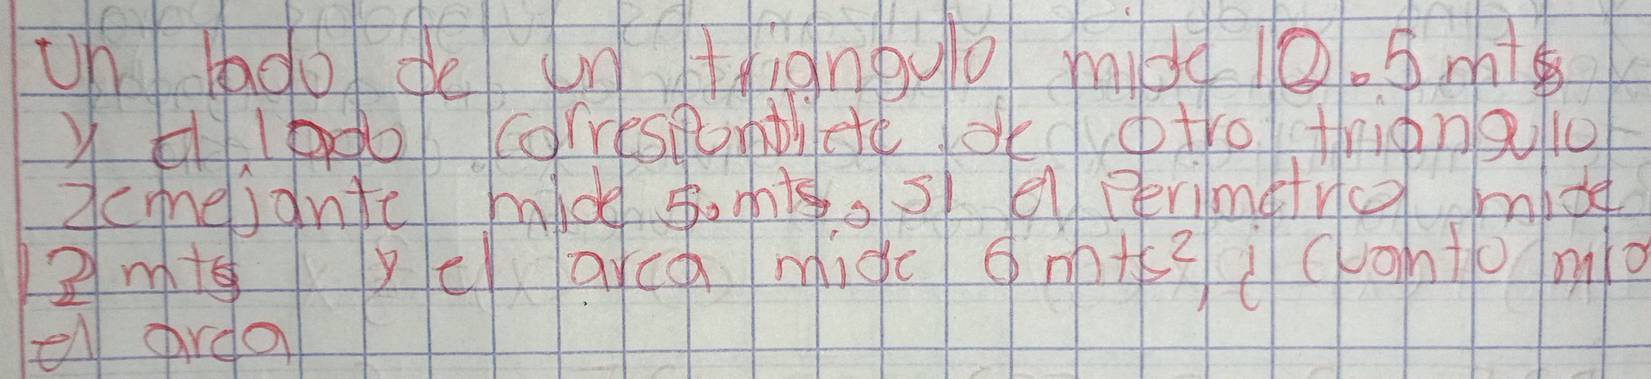 Un lado de un triangulo mide 10.5 mts
y el lado correspondiete de otro triangulo
zemejante mide 5. mts. si el Perimetro mide
12 mts y el area mide 6 mts², ¿ Cuanto mid
el area